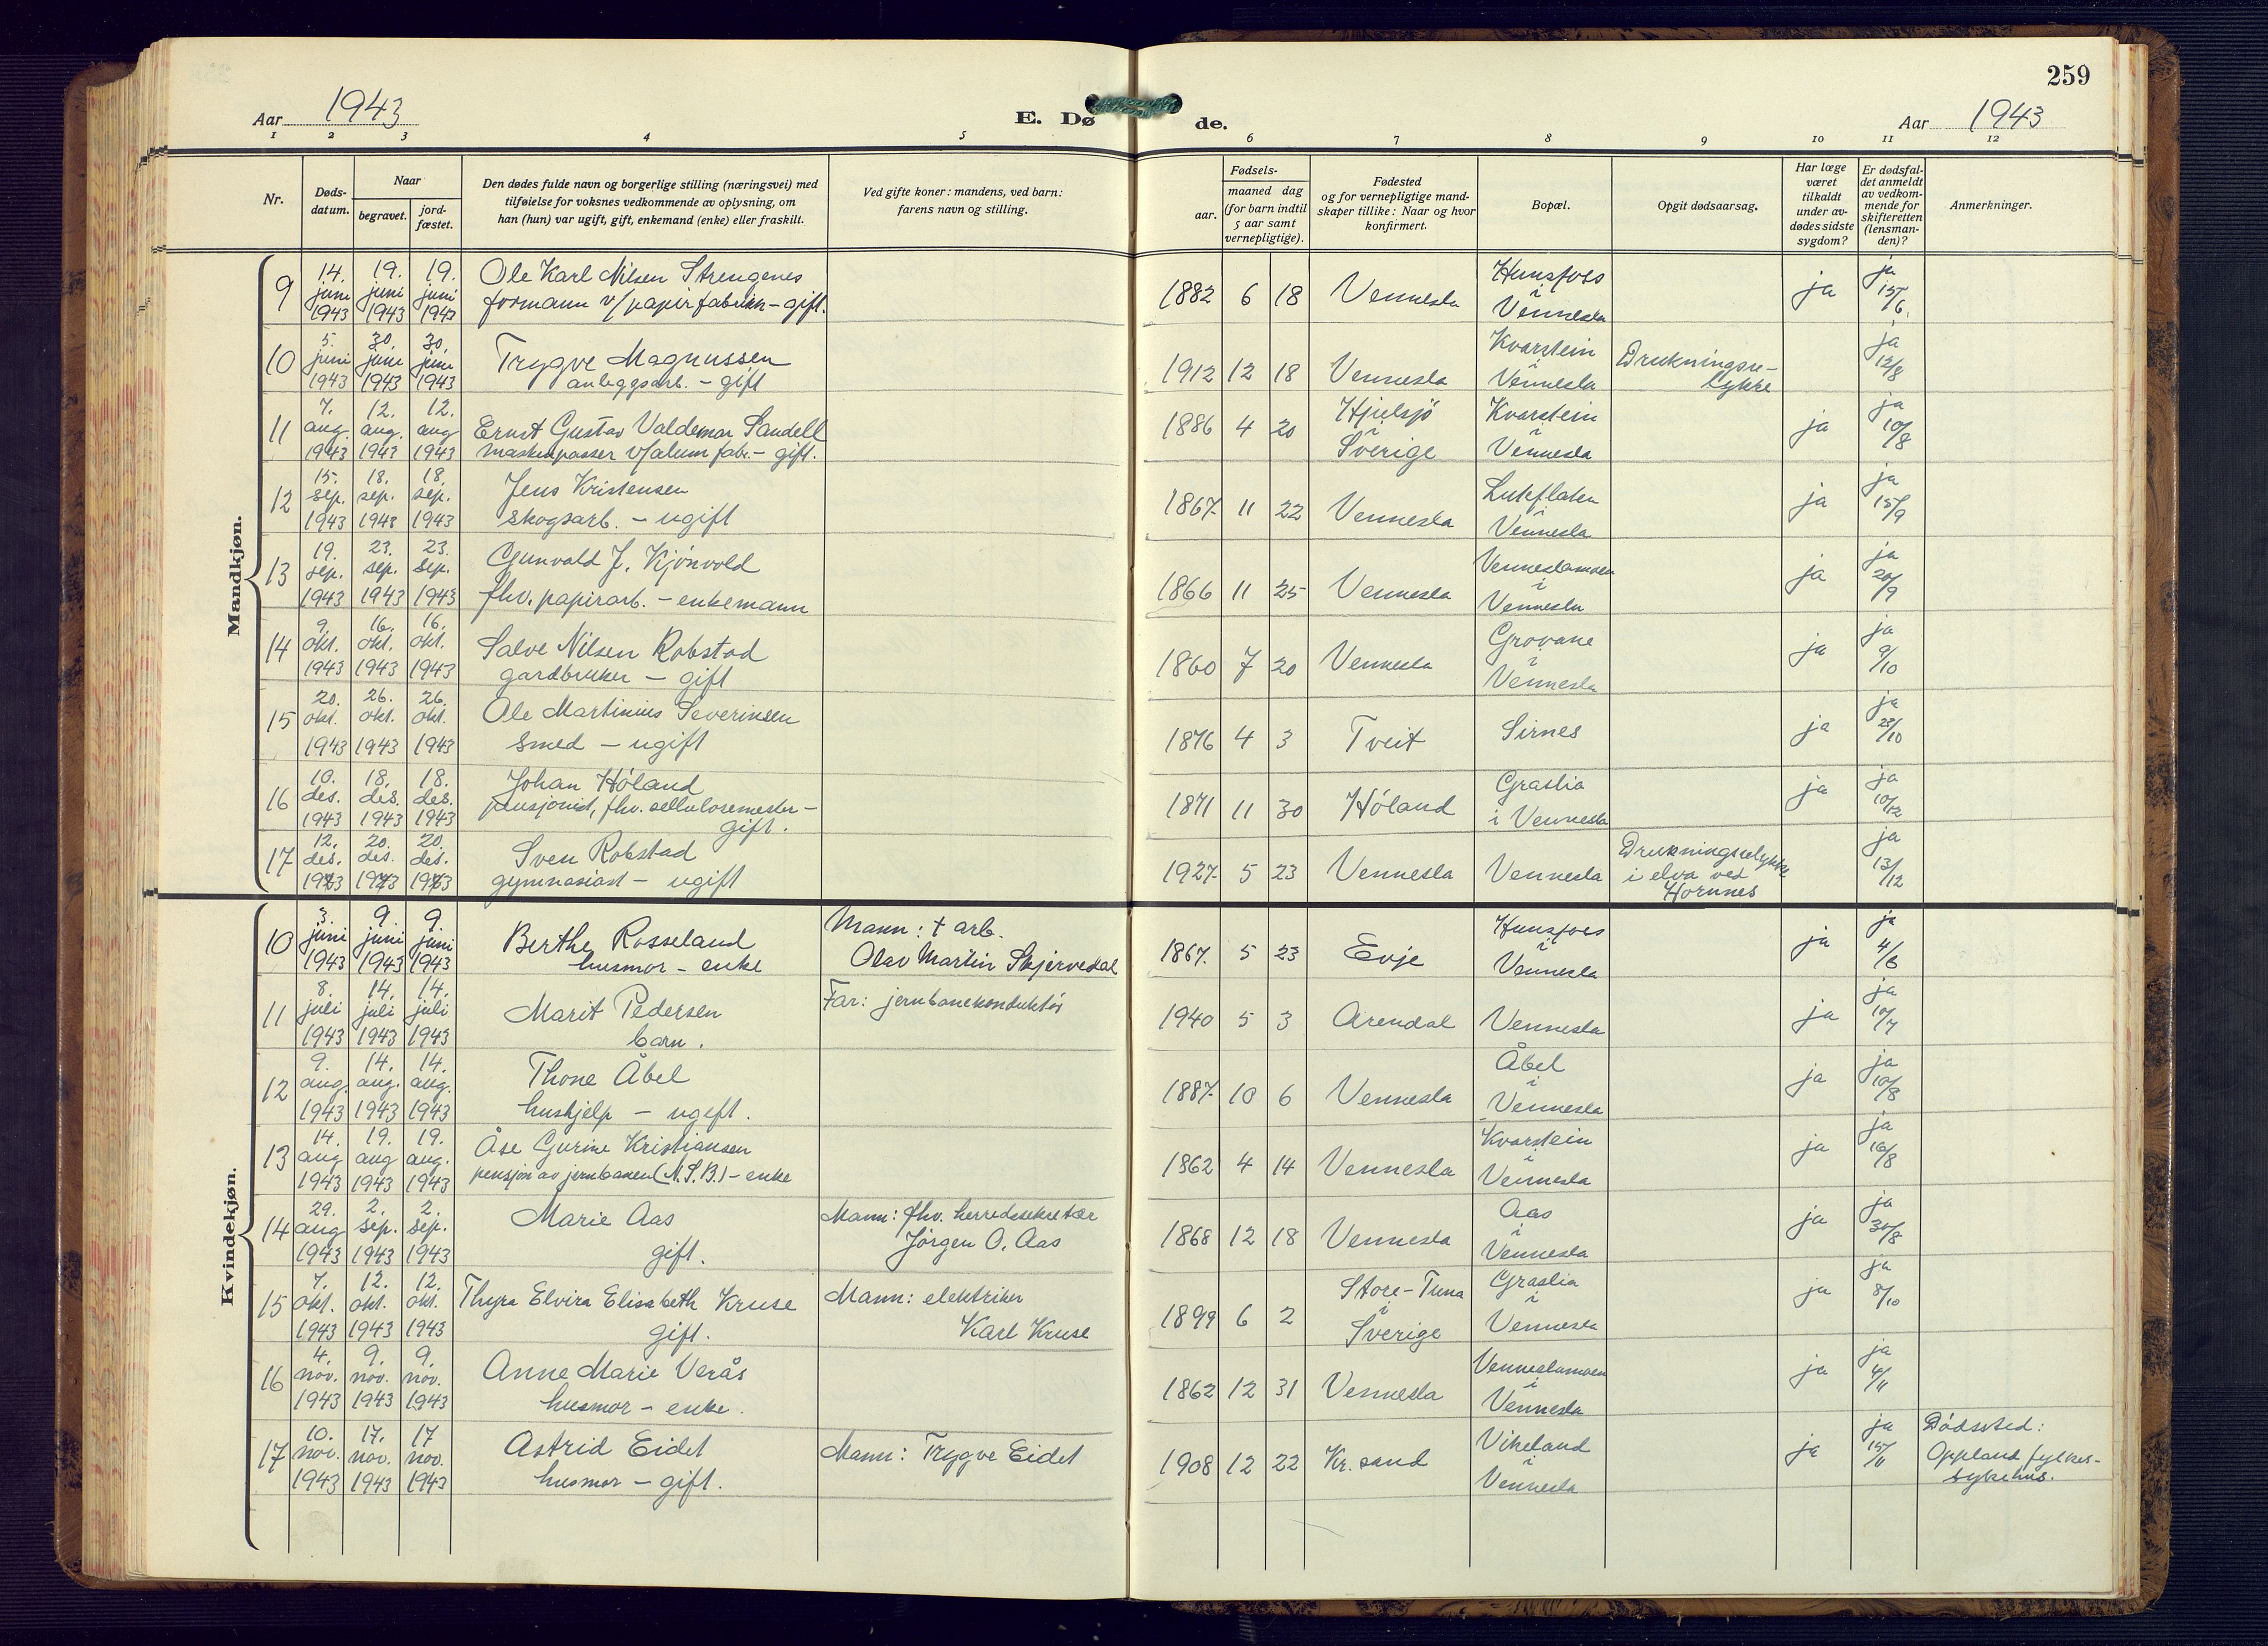 259
Aar 1943
E. Dø de.
Aar 1943
1 2 3 4 5 6 7 8 9 10 11 12
Nr.
Døds-
datum.
Naar
begravet.
jord-
fæstet.
Den dødes fulde navn og borgerlige stilling (næringsvei) med
tilføielse for voksnes vedkommende av oplysning, om
han (hun) var ugift, gift, enkemand (enke) eller fraskilt.
Ved gifte koner: mandens, ved barn:
farens navn og stilling.
Fødsels-
aar.
maaned dag
(for barn indtil
5 aar samt
vernepligtige).
Fødested
og for vernepligtige mand-
skaper tillike: Naar og hvor
konfirmert.
Bopæl.
Opgit dødsaarsag.
Har læge
været
tilkaldt
under av-
dødes sidste
sygdom?
Er dødsfal-
det anmeldt
av vedkom-
mende for
skifteretten
(lensman-
den)?
Anmerkninger.
Mandkjøn.
9 14. juni 1943 19. juni 1943 19. juni 1943 Ole Karl Nilsen Strengenes
formann v/papirfabrikk – gift. 1882 6 18 Vennesla Hunsfoss i Vennesla ja ja 15/6.
10 5. juni 1943 30. juni 1943 30. juni 1943 Trygve Magnussen
anleggsarb. – gift 1912 12 18 Vennesla Kvarstein i Vennesla Drukningsu-
lykke ja 12/8
11 7. aug. 1943 12. aug. 1943 12. aug 1943 Ernst Gustav Valdemar Sandell
maskinpasser v/alum fabr. – gift. 1886 4 20 Hjulsjö i Sverige Kvarstein i Vennesla ja ja 10/8
12 15. sep. 1943 18. sep. 1943 18. sep. 1943 Jens Kristensen
skogsarb. – ugift 1867 11 22 Vennesla Luteflaten i Vennesla ja ja 15/9
13 19. sep. 1943 23. sep. 1943 23. sep. 1943 Gunvald J. Kjønvold
fhv. papirarb. – enkemann 1866 11 25 Vennesla Venneslamoen i Vennesla ja ja 20/9
14 9. okt. 1943 16. okt. 1943 16. okt. 1943 Salve Nilsen Robstad
gardbruker – gift 1860 7 20 Vennesla Grovane i Vennesla ja ja 9/10
15 20. okt. 1943 26. okt. 1943 26. okt. 1943 Ole Martinius Severinsen
Smed – ugift 1876 4 3 Tveit Sirnes ja ja /10
16 10. des. 1943 18. des. 1943 18. des. 1943 Johan Höland
pensjonist, fhv. cellulosemester –
gift. 1871 11 30 Höland Graslia i Vennesla ja ja 10/12
17 12. des. 1943 20. des. 1943 20. des. 1943 Sven Robstad
gymnasiast – ugift 1927 5 23 Vennesla Vennesla Drukningsulykke
i elva ved
Hornnes ja 13/12
Kvindekjøn.
10 3. juni 1943 9. juni 1943 9. juni 1943 Berthe Rosseland
husmor – enke Mann: † arb.
Olav Martin Skjervedal 1867. 5 23 Evje Hunsfoss i Vennesla ja ja 4/6
11 8. juli 1943 14. juli 1943 14. juli 1943 Marit Pedersen
barn. Far: jernbanekonduktör 1940 5 3 Arendal Vennesla ja ja 10/7
12 9. aug. 1943 14. aug. 1943 14. aug. 1943 Thone Åbel
hushjelp – ugift. 1887 10 6 Vennesla Åbel i Vennesla ja ja 10/8
13 14. aug 1943 19. aug 1943 19. aug. 1943 Åse Gurine Kristiansen
pensjon av jernbanen (N.S.B.) – enke 1862 4 14 Vennesla Kvarstein i Vennesla ja ja 16/8
14 29. aug 1943 2. sep. 1943 2. sep. 1943 Marie Aas
gift. Mann: fhv. herredssekretær
Jörgen O. Aas 1868 12 18 Vennesla Aas i Vennesla ja ja 30/8
15 7. okt. 1943 12. okt. 1943 12. okt. 1943 Thyra Elvira Elisabeth Kruse
gift. Mann: elektriker
Karl Kruse 1899 6 2 Store-Tuna i Sverige Graslia i Vennesla ja ja 8/10
16 4. nov. 1943 9. nov. 1943 9. nov. 1943 Anne Marie Verås
husmor – enke. 1862 12 31 Vennesla Venneslamoen i Vennesla ja ja 4/11
17 10. nov. 1943 17. nov. 1943 17 nov. 1943 Astrid Eidet
husmor – gift. Mann: Trygve Eidet 1908 12 22 Kr. sand Vikeland i Vennesla ja ja 15/11 Dödssted:
Oppland fylkes-
sykehus.